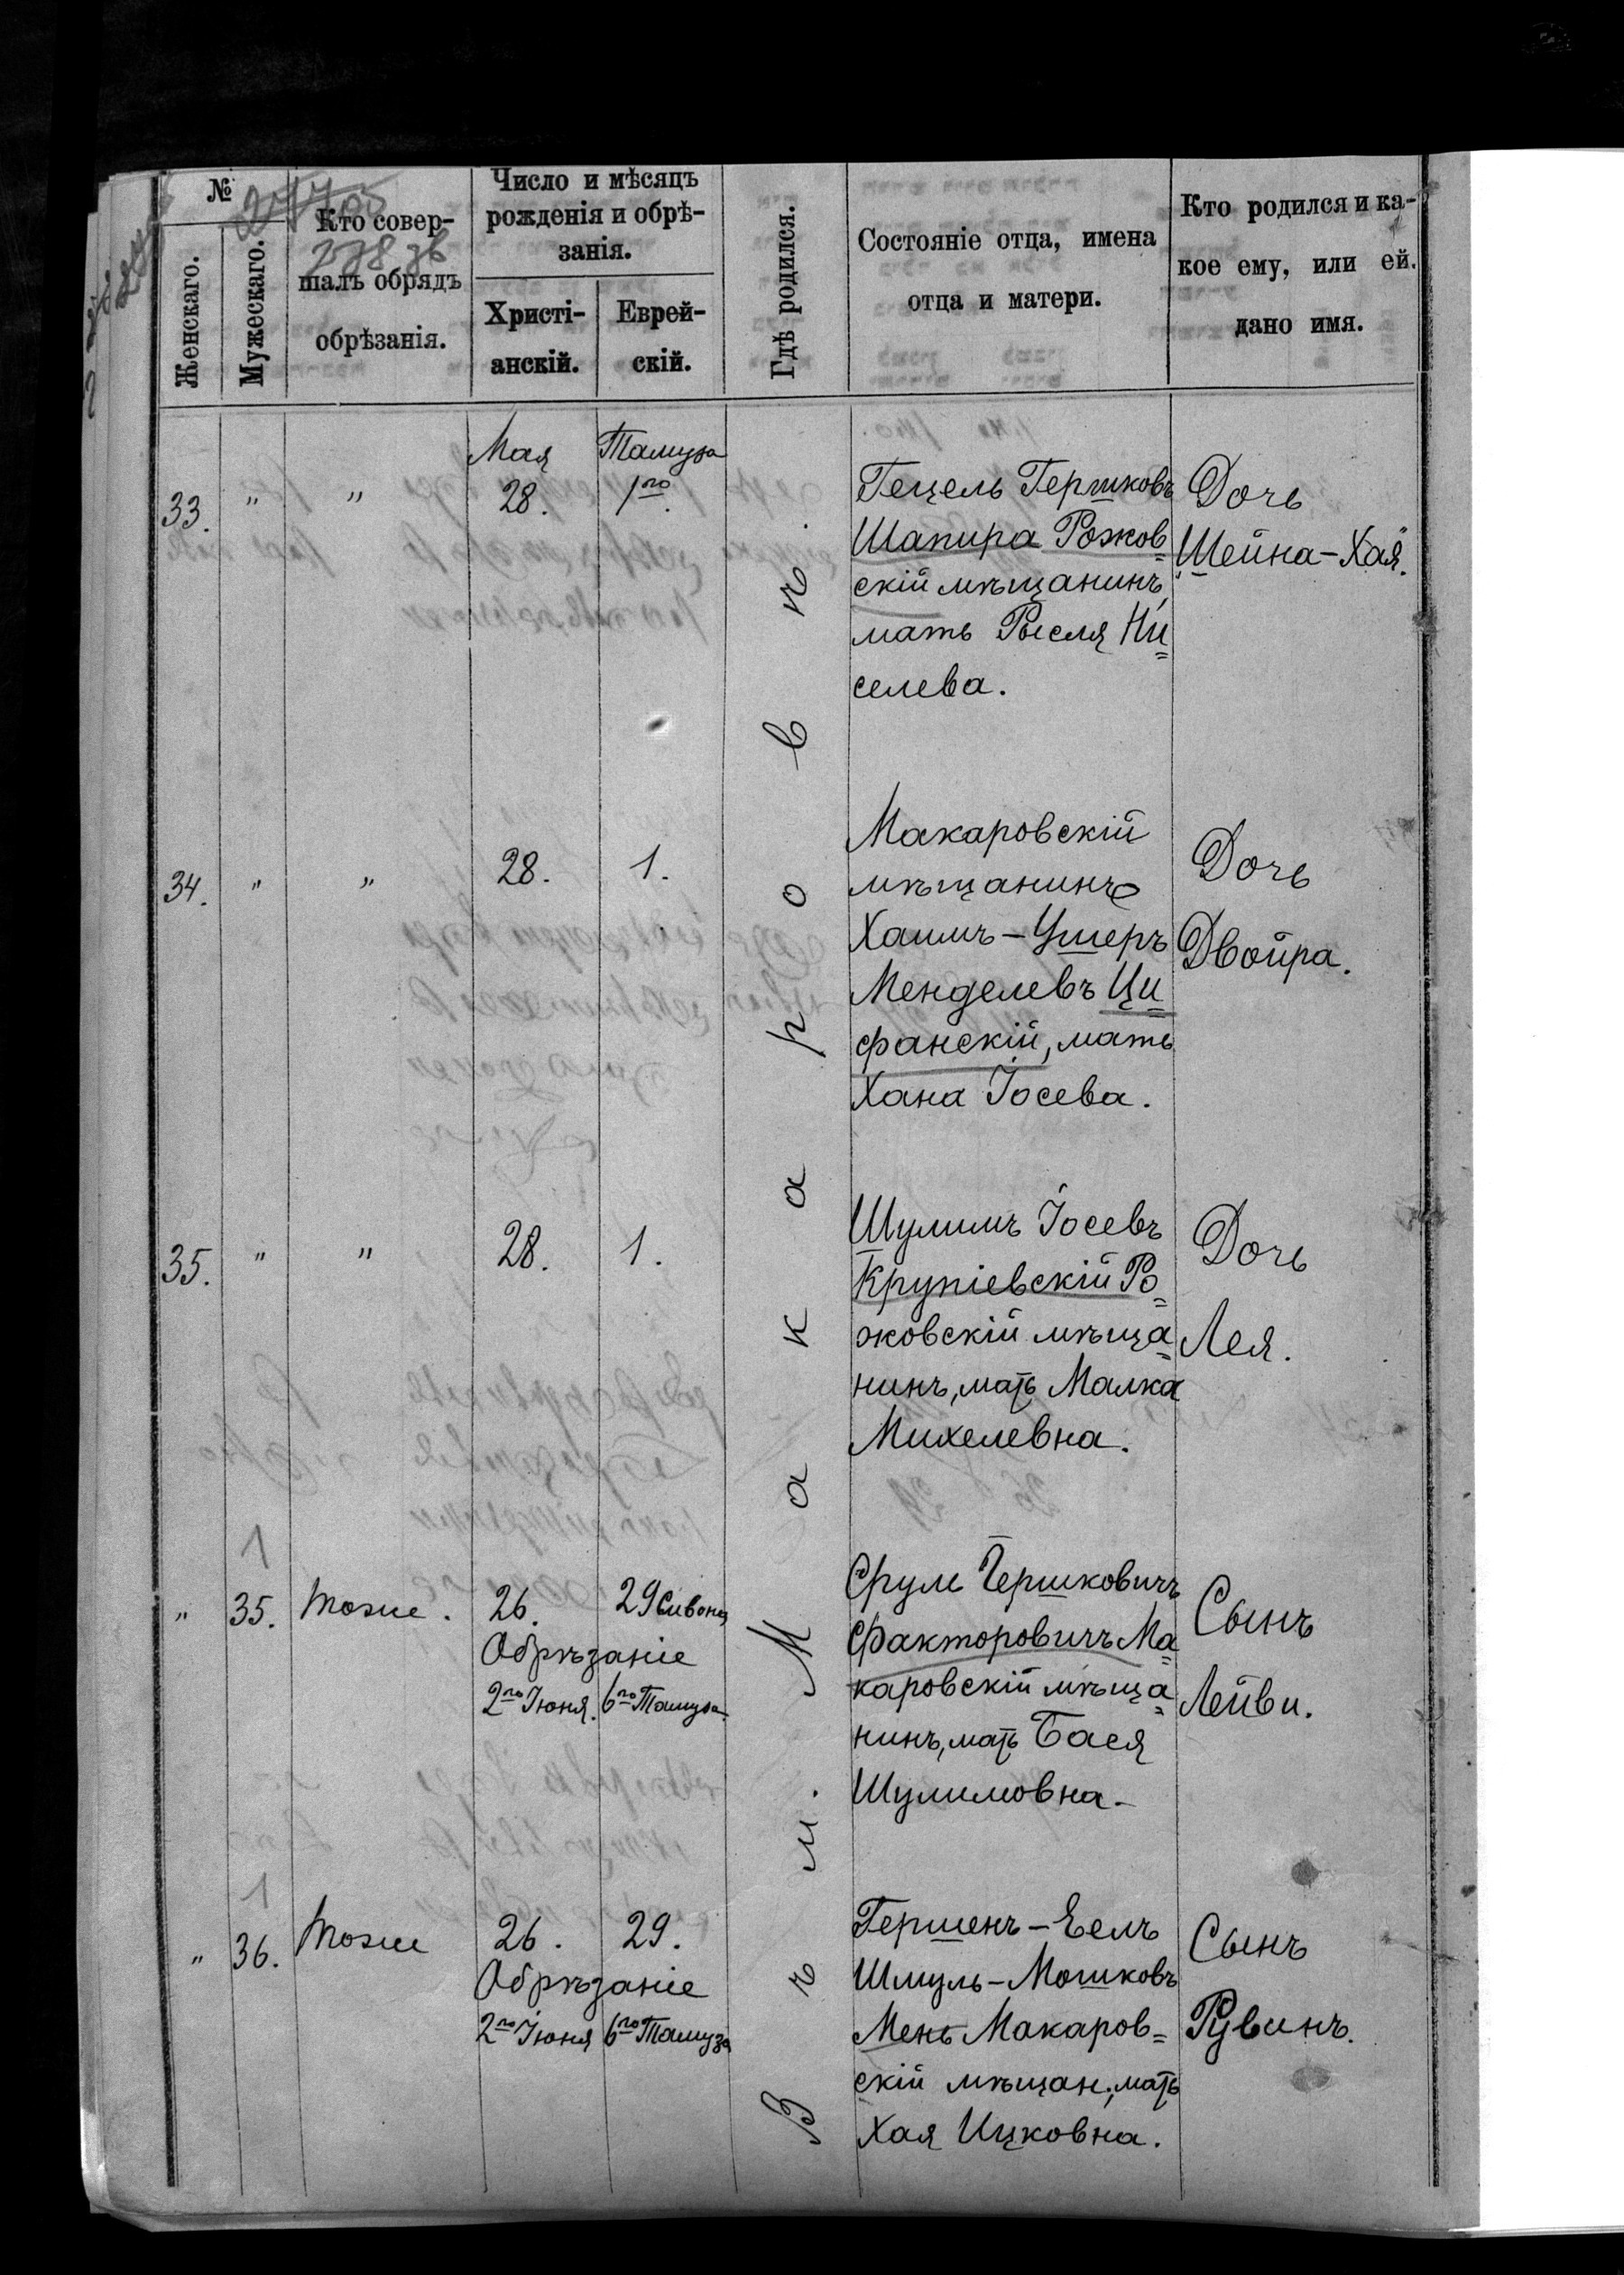 №
Женскаго.
Мужескаго.
Кто совер-
шалъ обрядъ
обрѣзанія.
Число и мѣсяцъ
рожденія и обрѣ-
занія.
Христі-
анскій.
Еврей-
скій.
Гдѣ родился.
Состояніе отца, имена
отца и матери.
Кто родился и ка-
кое ему, или ей.
дано имя.
Въ м. Макаровъ.
Мая Тамуза
33. " " 28. 1го.
Гецель Гершковъ
Шапира Рожов=
скій мѣщанинъ,
мать Рысля Ни=
селева.
Дочь
Шейна-Хая.
34. " " 28. 1.
Макаровскій
мѣщанинъ
Хаимъ-Ушеръ
Менделевъ Ци=
фанскій, мать
Хана Іосева.
Дочь
Двойра.
35. " " 28. 1.
Шулимъ Іосевъ
Крупіевскій Ро=
жовскій мѣща=
нинъ, мать Малка
Михелевна.
Дочь
Лея.
1
" 35. Тоже. 26. 29 Сивона
Обрѣзаніе
2го Іюня. 6го Тамуза.
Сруль Гершковичъ
Факторовичъ Ма=
каровскій мѣща=
нинъ, мать Бася
Шулимовна.
Сынъ
Лейви.
1
" 36. Тоже 26. 29.
Обрѣзаніе
2го Іюня 6го Тамуза
Гершенъ-Белъ
Шмуль-Мошковъ
Мень Макаров=
скій мѣщан., мать
Хая Ицковна.
Сынъ
Рувинъ.